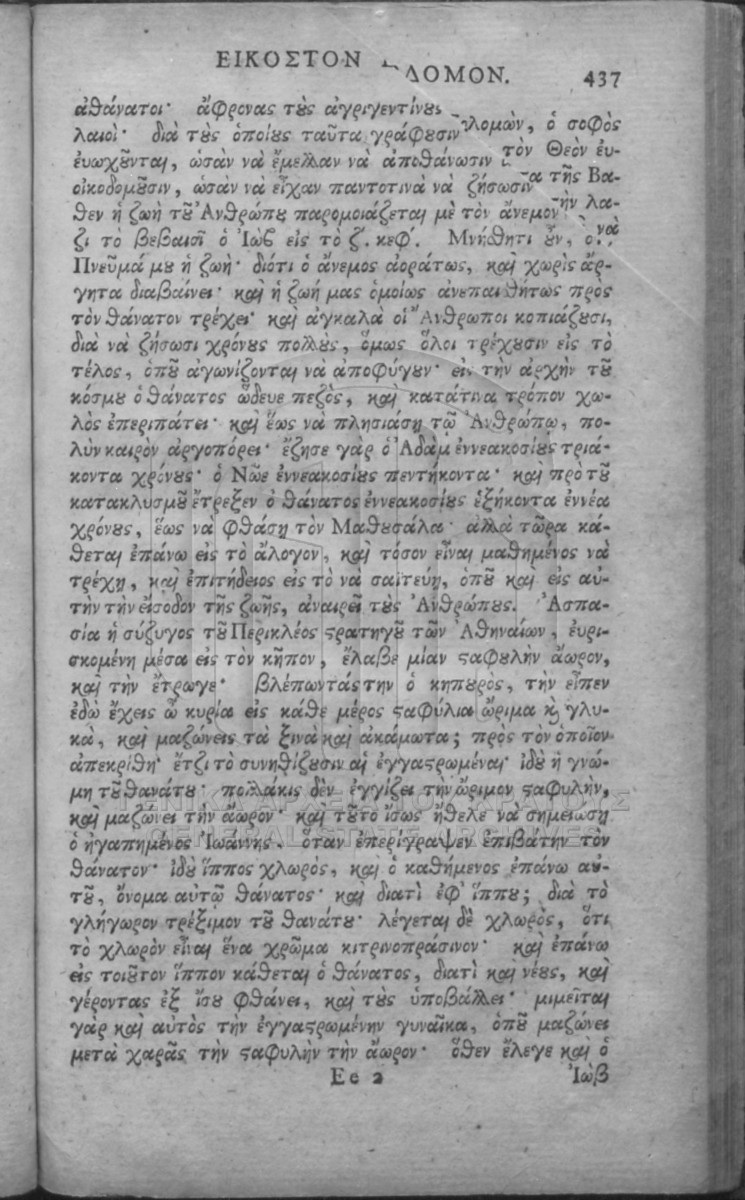 ΕΙΚΟΣΤΟΝ ΔΟΜΟΝ. 437
ἀθάνατοι· ἄφρονας τȣ̀ς ἀγριγεντίνȣς
λαιοὶ· διὰ τȣ̀ς ὁποίȣς ταῦτα γράφȣσιν λομὼν, ὁ σοφὸς
ἐυωχȣ͂νται, ὡσὰν νὰ ἔμελλαν νὰ ἀποθάνωσιν τὸν Θεὸν ἐυ-
οἰκοδομȣ͂σιν, ὡσὰν νὰ εἶχαν παντοτινὰ νὰ ζήσωσιν τῆς Βα-
θεν ἡ ζωὴ τȣ͂ Ἀνθρώπȣ παρομοιάζεται μὲ τὸν ἄνεμον λα-
ζι τὸ βεβαιοῖ ὁ Ἰὼβ εἰς τὸ ζ. κεφ. Μνήσθητι ȣ͂ν, ὅ νὰ
Πνεῦμά μȣ ἡ ζωὴ· διότι ὁ ἄνεμος ἀοράτως, καὶ χωρὶς ἄρ-
γητα διαβαίνει· καὶ ἡ ζωή μας ὁμοίως ἀνεπαισθήτως πρὸς
τὸν θάνατον τρέχει· καὶ ἀγκαλὰ οἱ Ἄνθρωποι κοπιάζȣσι,
διὰ νὰ ζήσωσι χρόνȣς πολλȣς, ὅμως ὅλοι τρέχȣσιν εἰς τὸ
τέλος, ὁπȣ͂ ἀγωνίζονται νὰ ἀποφύγȣν· εἰν τὴν ἀρχὴν τȣ͂
κόσμȣ ὁ θάνατος ὥδευε πεζὸς, καὶ κατάτινα τρόπον χω-
λὸς ἐπεριπάτει· καὶ ἕως νὰ πλησιάσῃ τῷ Ἀνθρώπῳ, πο-
λὺν καιρὸν ἀργοπόρει· ἔζησε γὰρ ὁ Ἀδὰμ ἐννεακοσίȣς τριά-
κοντα χρόνȣς· ὁ Νῶε ἐννεακοσίȣς πεντήκοντα· καὶ πρὸ τȣ͂
κατακλυσμȣ͂ ἔτρεξεν ὁ θάνατος ἐννεακοσίȣς ἑξήκοντα ἐννέα
χρόνȣς, ἕως νὰ φθάσῃ τὸν Μαθȣσάλα· ἀλλὰ τῶρα κά-
θεται ἐπάνω εἰς τὸ ἄλογον, καὶ τόσον εἶναι μαθημένος νὰ
τρέχῃ, καὶ ἐπιτήδειος εἰς τὸ νὰ σαϊτεύῃ, ὁπȣ͂ καὶ εἰς αὐ-
τὴν τὴν εἴσοδον τῆς ζωῆς, ἀναιρεῖ τȣ̀ς Ἀνθρώπȣς. Ἀσπα-
σία ἡ σύζυγος τȣ͂ Περικλέος ϛρατηγȣ͂ τῶν Ἀθηναίων, ἐυρι-
σκομένη μέσα εἰς τὸν κῆπον, ἔλαβε μίαν ϛαφυλὴν ἄωρον,
καὶ τὴν ἔτρωγε· βλέπωντάς την ὁ κηπȣρὸς, τὴν εἶπεν
ἐδὼ ἔχεις ὦ κυρία εἰς κάθε μέρος ϛαφύλια ὥριμα ϗ γλυ-
κὰ, καὶ μαζώνεις τὰ ξινὰ καὶ ἀκάμωτα; πρὸς τὸν ὁποῖον
ἀπεκρίθη· ἔτζι τὸ συνηθίζȣσιν αἱ ἐγγαϛρωμέναι· ἰδȣ̀ ἡ γνώ-
μη τȣ͂ θανάτȣ· πολλάκις δὲν ἐγγίζει τὴν ὥριμον ϛαφυλὴν,
καὶ μαζώνει τὴν ἄωρον· καὶ τȣ͂το ἴσως ἤθελε νὰ σημειώσῃ
ὁ ἠγαπημένος Ἰωάννης. ὅταν ἐπερίγραψεν ἐπιβάτην τὸν
θάνατον· ἰδȣ̀ ἵππος χλωρὸς, καὶ ὁ καθήμενος ἐπάνω αὐ-
τȣ͂, ὄνομα αὐτῷ θάνατος· καὶ διατὶ ἐφ' ἵππȣ; διὰ τὸ
γλήγωρον τρέξιμον τȣ͂ θανάτȣ· λέγεται δὲ χλωρὸς, ὅτι
τὸ χλωρὸν εἶναι ἕνα χρῶμα κιτρινοπράσινον· καὶ ἐπάνω
εἰς τοιȣ͂τον ἵππον κάθεται ὁ θάνατος, διατὶ καὶ νέȣς, καὶ
γέροντας ἐξ ἴσȣ φθάνει, καὶ τȣ̀ς ὑποβάλλει· μιμεῖται
γὰρ καὶ αὐτὸς τὴν ἐγγαϛρωμένην γυναῖκα, ὁπȣ͂ μαζώνει
μετὰ χαρᾶς τὴν ϛαφυλὴν τὴν ἄωρον· ὅθεν ἔλεγε καὶ ὁ
Ee 2 Ἰὼβ
ΓΕΝΙΚΑ ΑΡΧΕΙΑ ΤΟΥ ΚΡΑΤΟΥΣ
GENERAL STATE ARCHIVES